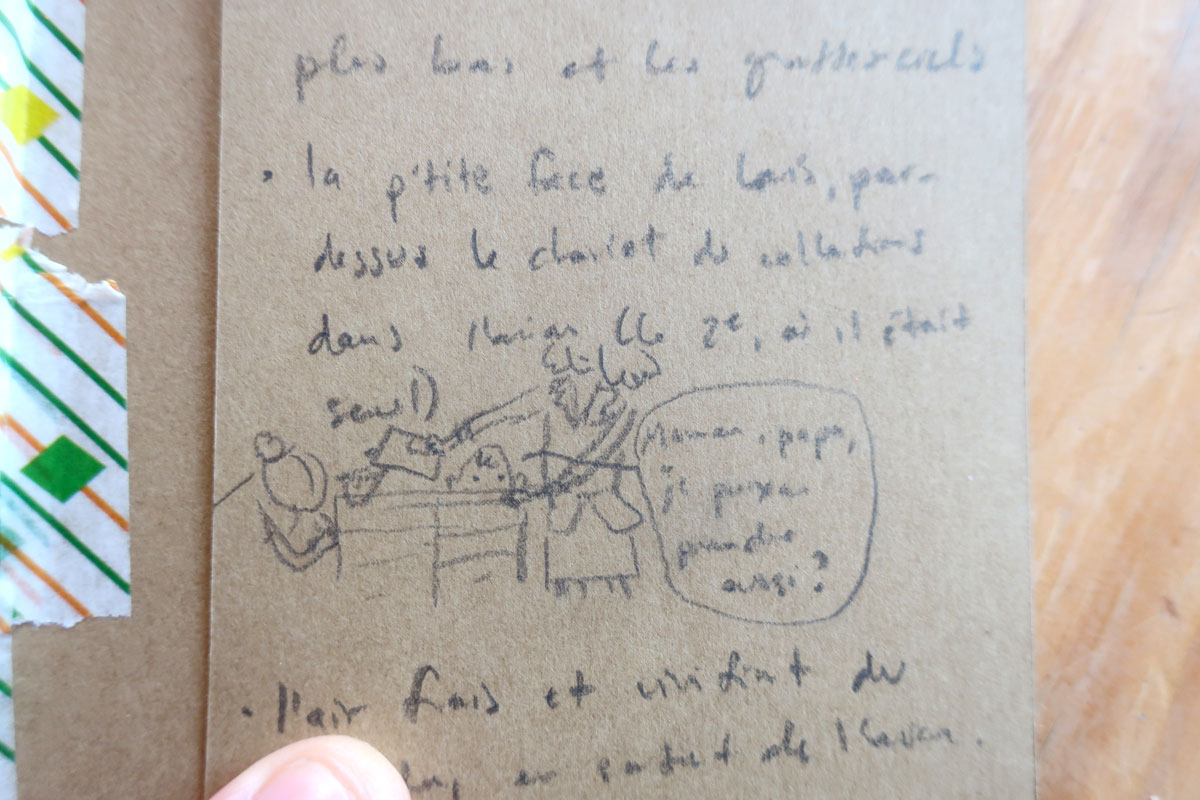 plus bas et les gratte-ciels
• la p'tite face de Louis, par-
dessus le chariot de collations
dans l'avion (le 2e, où il était
seul)
Maman, papa,
je peux
prendre
aussi?
• l'air frais et vivifiant de
en sortant de l'avion.